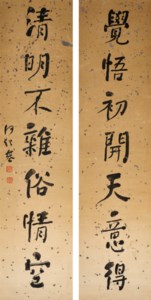 覺悟初開天意得
清明不雜俗情空
何紹基